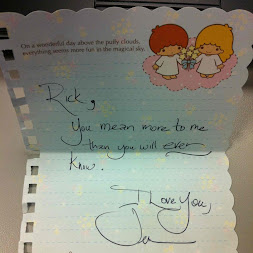 On a wonderful day above the puffy clouds,
everything seems more fun in the magical sky.
Rick,
You mean more to me
than you will ever
know.
I Love You,